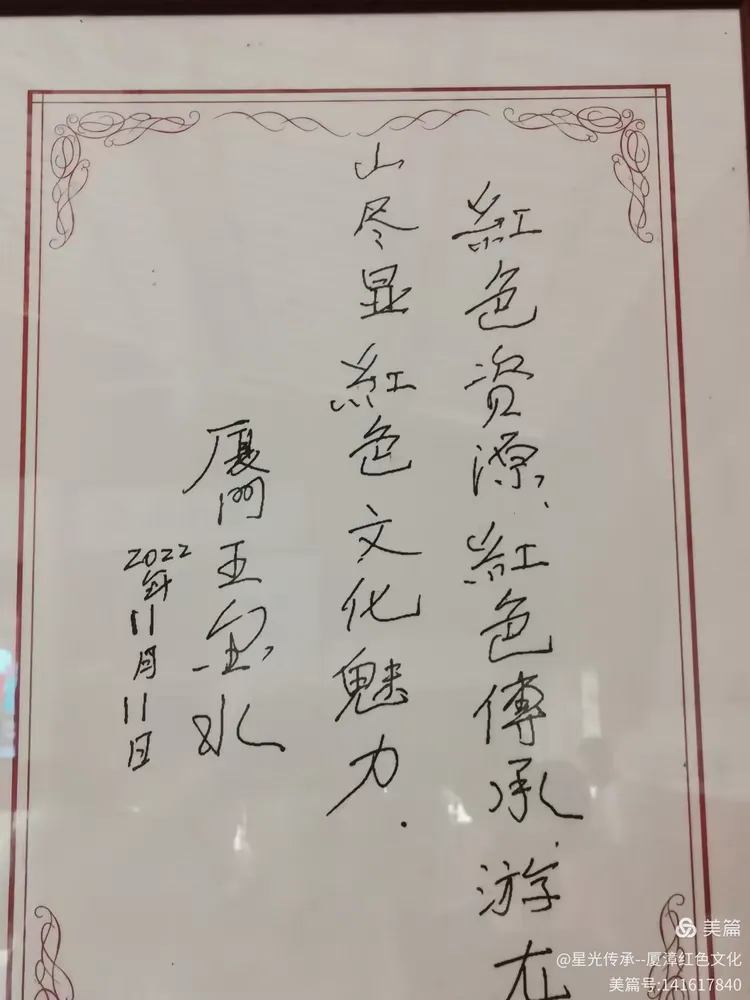 紅色資源、紅色傳承游
山尽显紅色文化魅力.
厦门王水
2022年11月11日
美篇
@星光传承--厦漳红色文化
美篇号:141617840